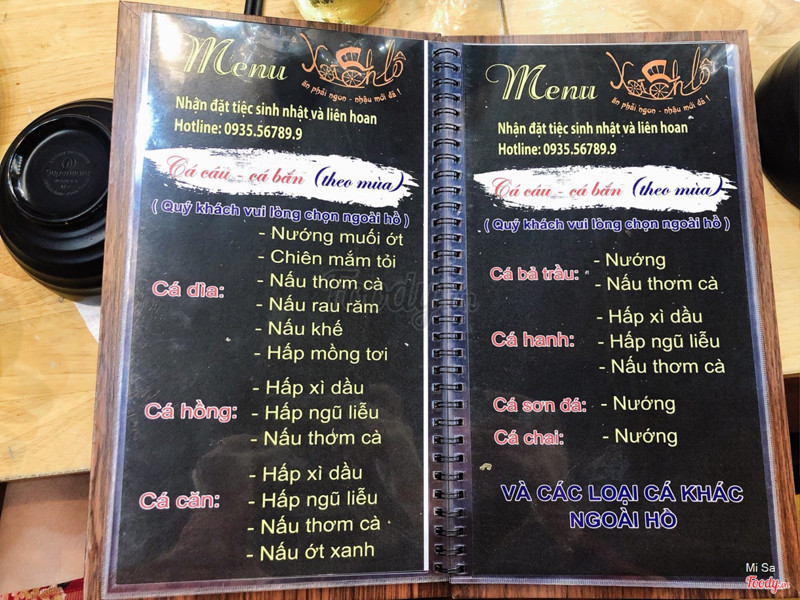 Menu Xích lô
ăn phải ngon - nhậu mới đã !
Nhận đặt tiệc sinh nhật và liên hoan
Hotline: 0935.56789.9
Cá câu - cá bắn (theo mùa)
( Quý khách vui lòng chọn ngoài hồ )
Cá dìa:
- Nướng muối ớt
- Chiên mắm tỏi
- Nấu thơm cà
- Nấu rau răm
- Nấu khế
- Hấp mồng tơi
Cá hồng:
- Hấp xì dầu
- Hấp ngũ liễu
- Nấu thơm cà
Cá căn:
- Hấp xì dầu
- Hấp ngũ liễu
- Nấu thơm cà
- Nấu ớt xanh
Menu Xích lô
ăn phải ngon - nhậu mới đã !
Nhận đặt tiệc sinh nhật và liên hoan
Hotline: 0935.56789.9
Cá câu - cá bắn (theo mùa)
( Quý khách vui lòng chọn ngoài hồ )
Cá bả trầu:
- Nướng
- Nấu thơm cà
Cá hanh:
- Hấp xì dầu
- Hấp ngũ liễu
- Nấu thơm cà
Cá sơn đá: - Nướng
Cá chai: - Nướng
VÀ CÁC LOẠI CÁ KHÁC
NGOÀI HỒ
Foody.vn
Mi Sa
Foody.vn